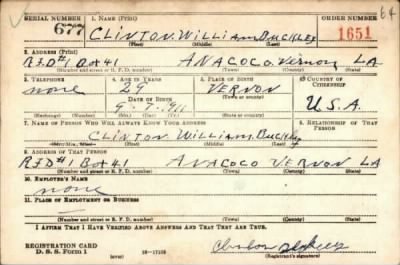 SERIAL NUMBER 1. NAME (Print) ORDER NUMBER 64
677 CLINTON. WILLIAM. BUCKLEY 1651
(First) (Middle) (Last)
2. ADDRESS (Print)
R.F.D#1 Box 41 ANACOCO. Vernon LA
(Number and street or R. F. D. number) (Town) (County) (State)
3. TELEPHONE 4. AGE IN YEARS 5. PLACE OF BIRTH 6. COUNTRY OF CITIZENSHIP
none 29 VERNON
DATE OF BIRTH (Town or county)
9-7-1911 LA U.S.A.
(Mo.) (Day) (Yr.) (State or country)
7. NAME OF PERSON WHO WILL ALWAYS KNOW YOUR ADDRESS 8. RELATIONSHIP OF THAT PERSON
CLINTON WILLIAM. Buckley
(Mr., Mrs., Miss) (First) (Middle) (Last)
9. ADDRESS OF THAT PERSON
R.F.D#1 Box 41 ANACOCO VERNON LA
(Number and street or R. F. D. number) (Town) (County) (State)
10. EMPLOYER'S NAME
none
11. PLACE OF EMPLOYMENT OR BUSINESS
(Number and street or R. F. D. number) (Town) (County) (State)
I AFFIRM THAT I HAVE VERIFIED ABOVE ANSWERS AND THAT THEY ARE TRUE.
REGISTRATION CARD
D. S. S. Form 1 (over) 16-17105 (Registrant's signature)